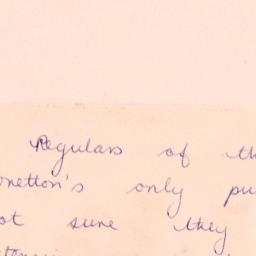 Regulars of th
onetton's only pu
ot sure they